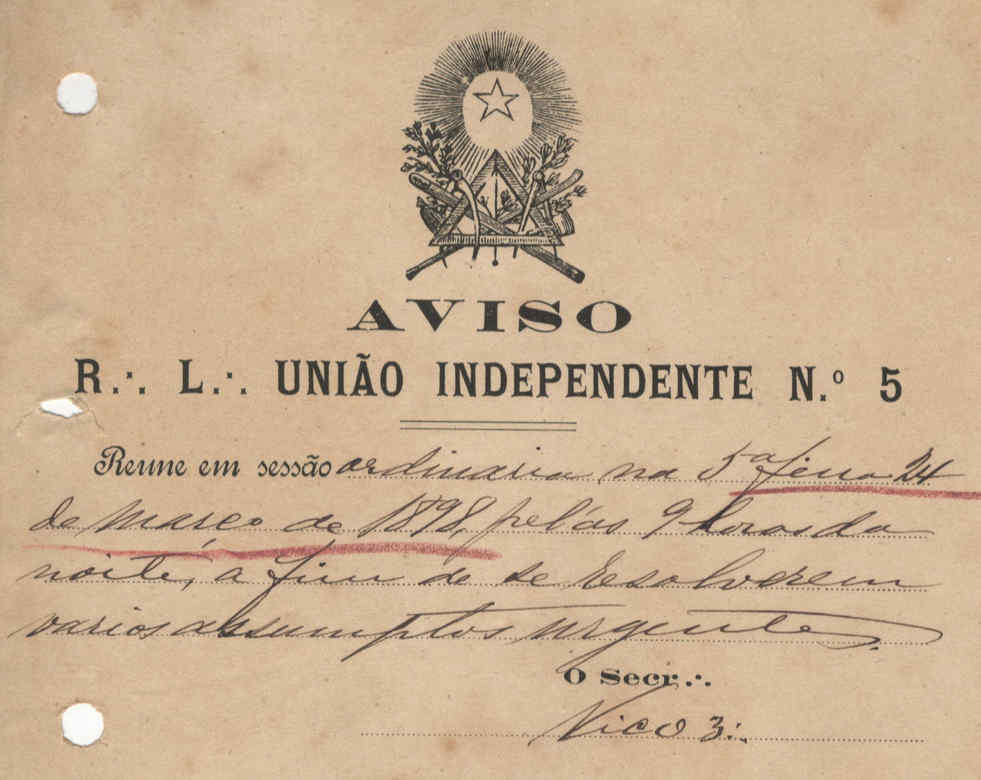 AVISO
R∴ L∴ UNIÃO INDEPENDENTE N.º 5
Reune em sessão ordinaria na 5ª feira 24
de março de 1898, pelas 9 horas da
noite, a fim de se resolverem
varios assumptos urgentes.
O Secr∴
Vico 3∴